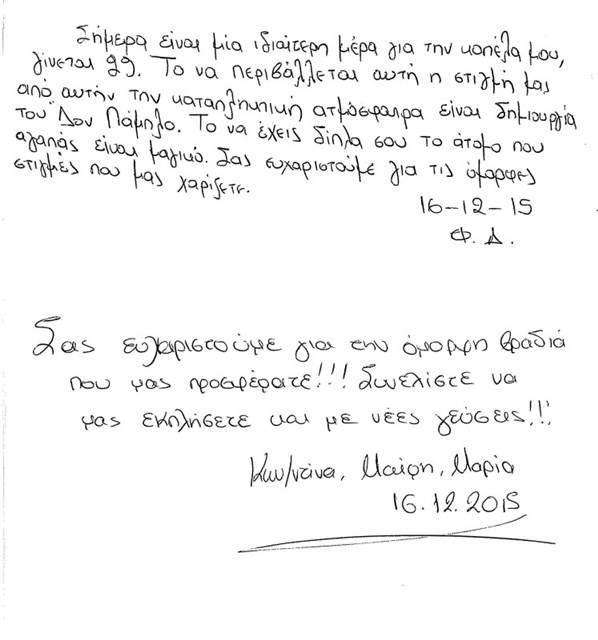 Σήμερα είναι μία ιδιαίτερη μέρα για την κοπέλα μου,
γίνεται 29. Το να περιβάλλεται αυτή η στιγμή μας
από αυτήν την καταπληκτική ατμόσφαιρα είναι δημιουργία
του "Δον Πάμπλο. Το να έχεις δίπλα σου το άτομο που
αγαπάς είναι μαγικό. Σας ευχαριστούμε για τις όμορφες
στιγμές που μας χαρίζετε.
16-12-15
Φ. Δ.
Σας ευχαριστούμε για την όμορφη βραδιά
που μας προσφέρατε!!! Συνεχίστε να
μας εκπλήσετε και με νέες γεύσεις!!!
Κων/ντίνα, Μαίρη, Μαρία
16.12.2015